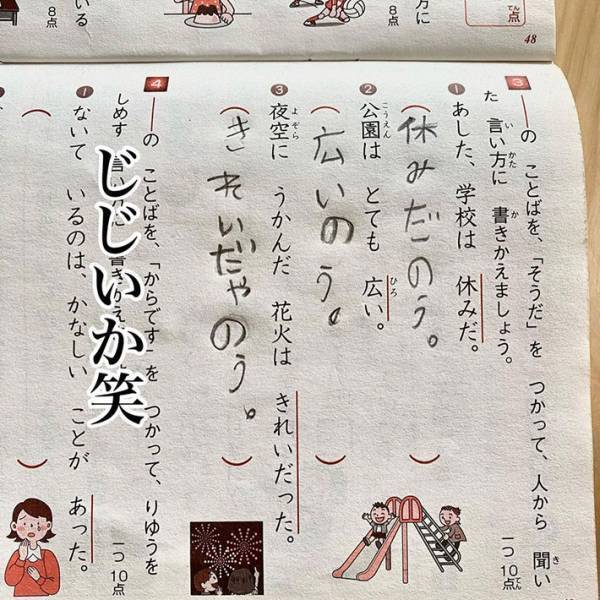 いる
8点
8点
方に
点
48
3 ――の ことばを、「そうだ」を つかって、人から 聞い
た 言い方に 書きかえましょう。
一つ10点
1 あした、学校は 休みだ。
（休みだのう。）
2 公園は とても 広い。
（広いのう。）
3 夜空に うかんだ 花火は きれいだった。
（きれいだゃのう。）
4 ――の ことばを、「からです」を つかって、りゆうを
しめす 言い方に 書きかえ
一つ10点
1 ないて いるのは、かなしい ことが あった。
じじいか笑